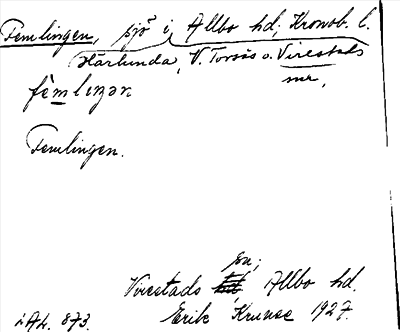 Femlingen, sjö i Allbo hd, Kronob. l.
Härlunda, V. Torsås o. Virestads
snr,
fèmlıŋən
Femlingen.
sn,
Virestads Allbo hd.
Erik Kruuse 1927.
LAL. 873.